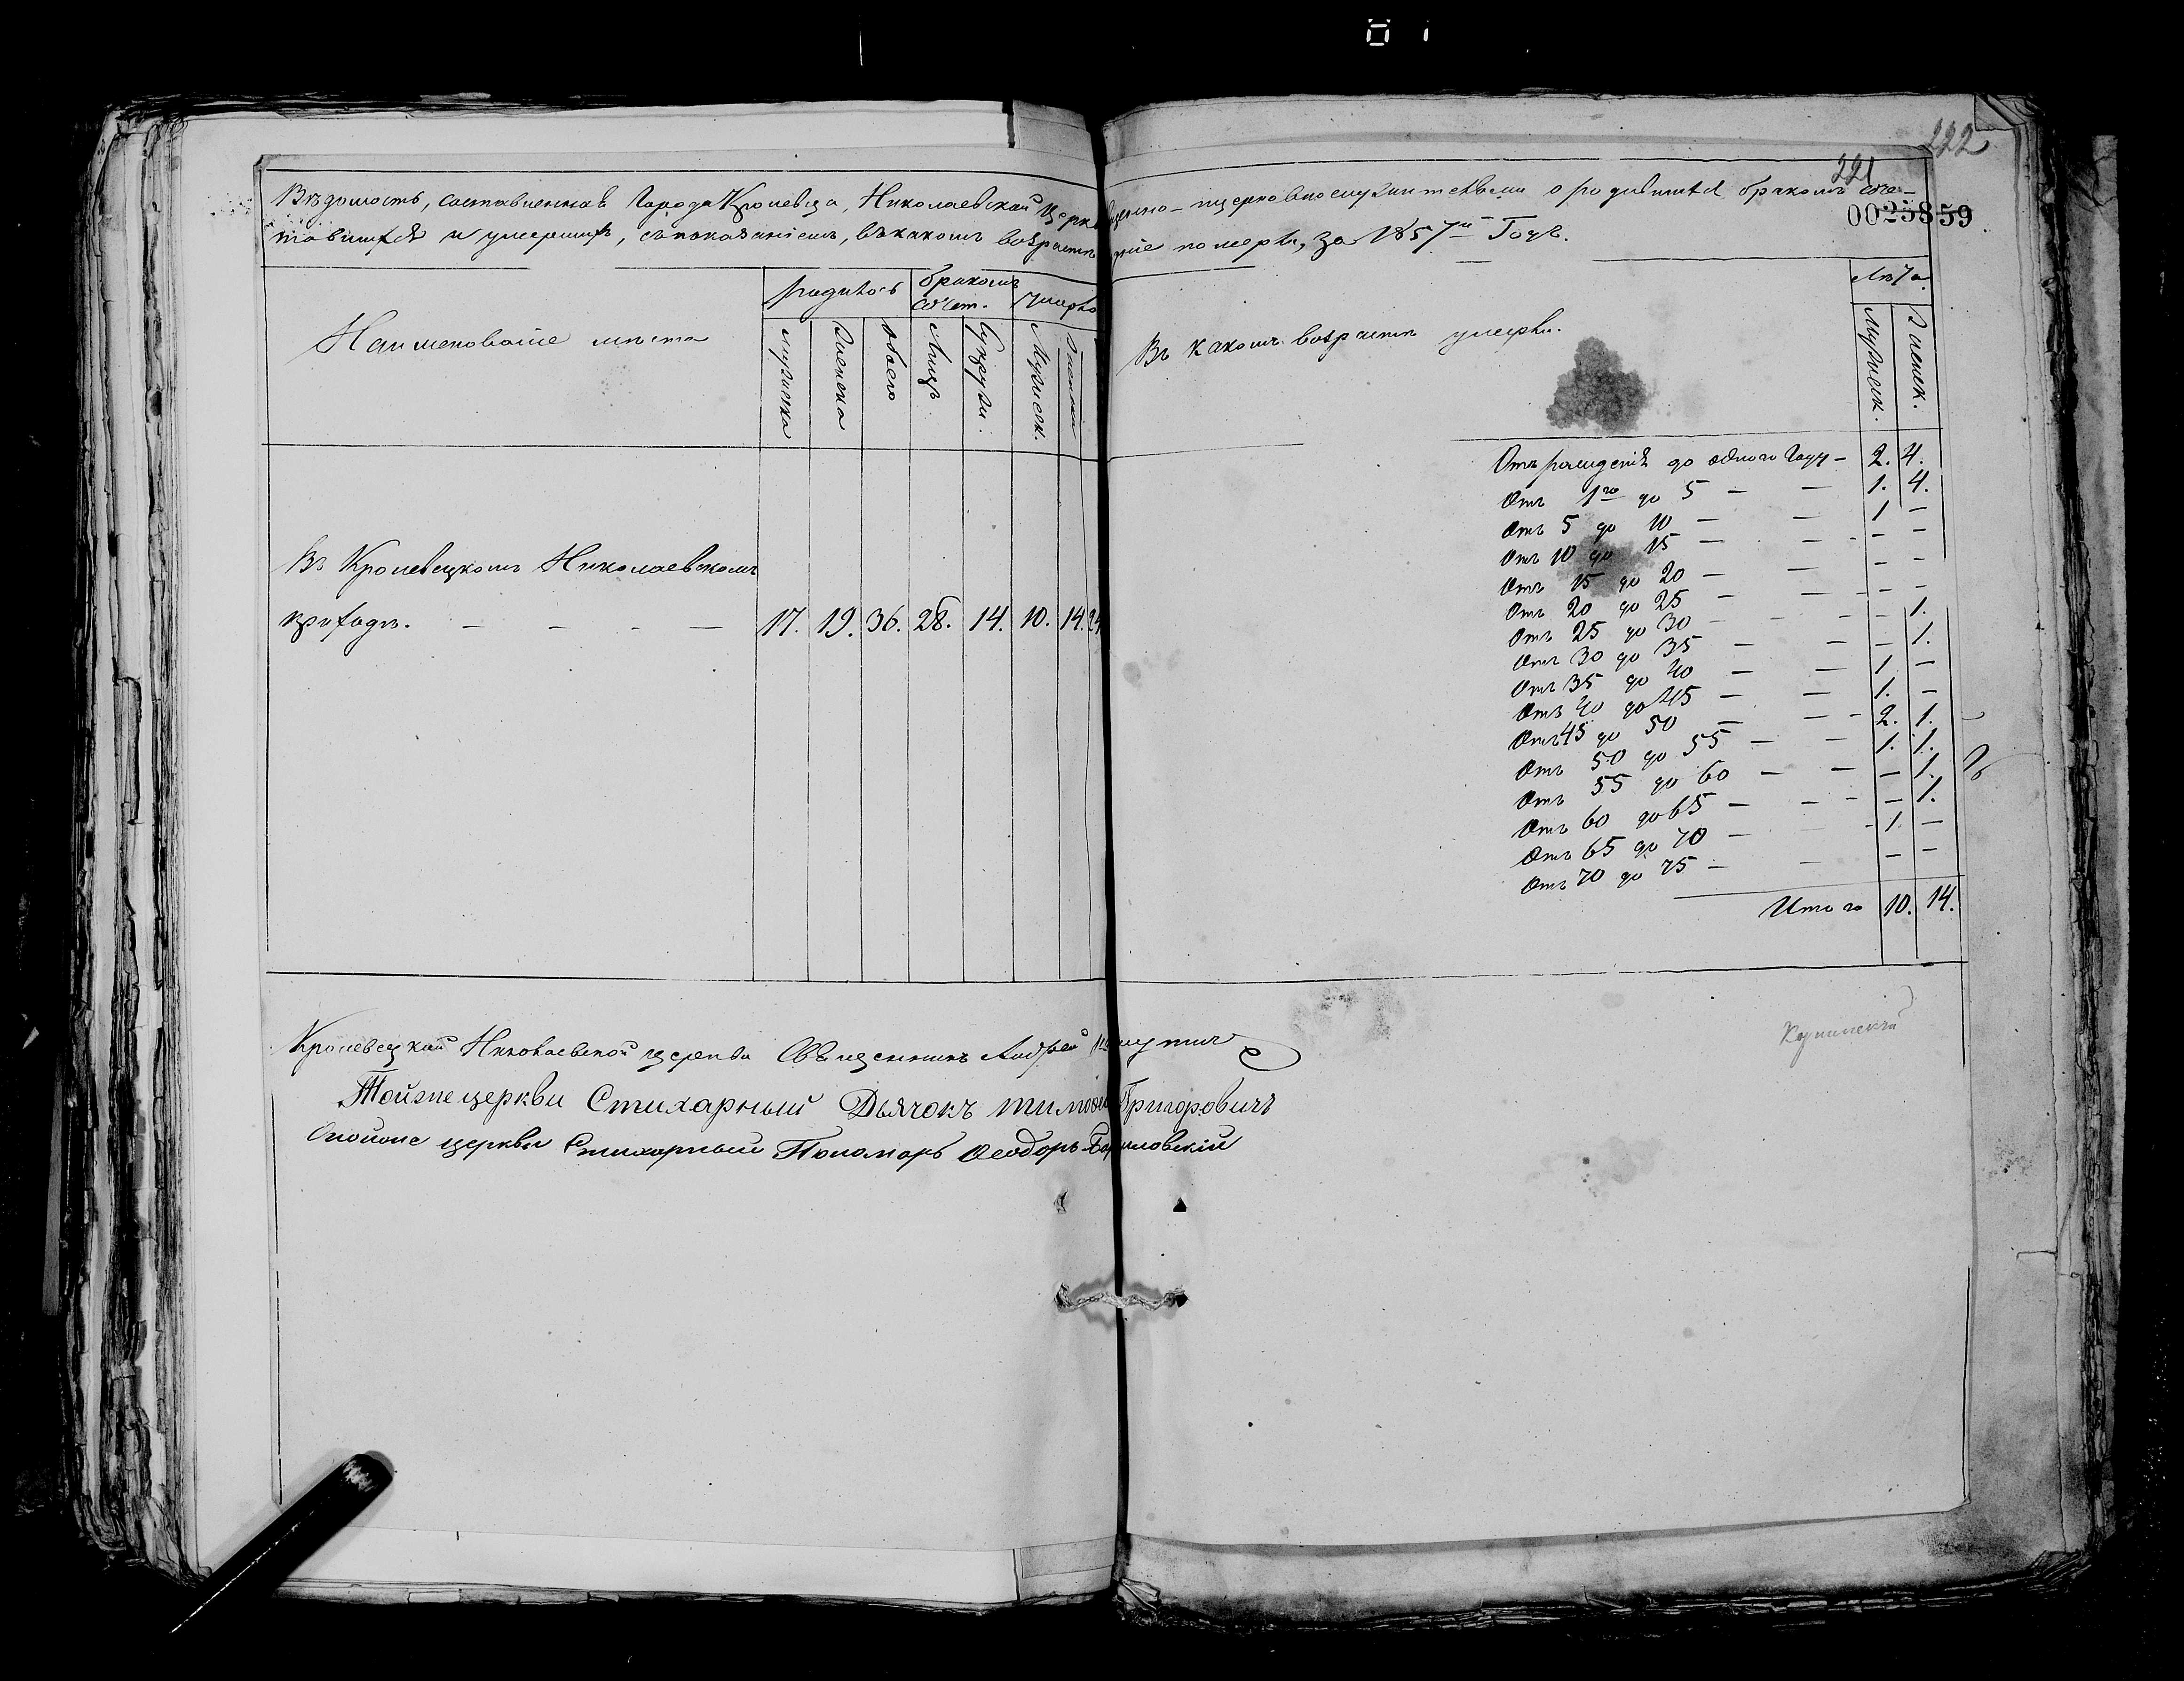 222
221
0025859
Вѣдомость, составленная Города Кролевца, Николаевской Церкви священно-церковнослужителями о родившихся бракомъ соче-
тавшихся и умершихъ, съ показаніемъ, въ какомъ возрастѣ померли, за 1857й Годъ.
Наименованіе мѣста
родилось
бракомъ сочет.
Умерло
мужеска
Женска
Обоего
Лицъ
Супруж.
Мужеск.
Женска
Въ какомъ возрастѣ умерли.
Лѣта
Мужеск.
Женск.
Въ Кролевецкомъ Николаевскомъ
приходѣ. — — — — 17. 19. 36. 28. 14. 10. 14. 24
Отъ рожденія до одного Году — 2. 4.
Отъ 1го до 5 — — 1. 4.
Отъ 5 до 10 — — 1 —
Отъ 10 до 15 — — — —
Отъ 15 до 20 — — — —
Отъ 20 до 25 — — — —
Отъ 25 до 30 — — — 1.
Отъ 30 до 35 — — — 1.
Отъ 35 до 40 — — 1 —
Отъ 40 до 45 — — 1. —
Отъ 45 до 50 — — 2. 1.
Отъ 50 до 55 — — 1. 1.
Отъ 55 до 60 — — — 1.
Отъ 60 до 65 — — — 1.
Отъ 65 до 70 — — 1. —
Отъ 70 до 75 — — — —
Итого 10. 14.
Кролевецкой Николаевской церкви Священникъ Андрей
Тойже церкви Стихарный Дьячокъ Тимофей Григоровичъ
Оной же церкви Стихарный Пономарь Ѳеодоръ